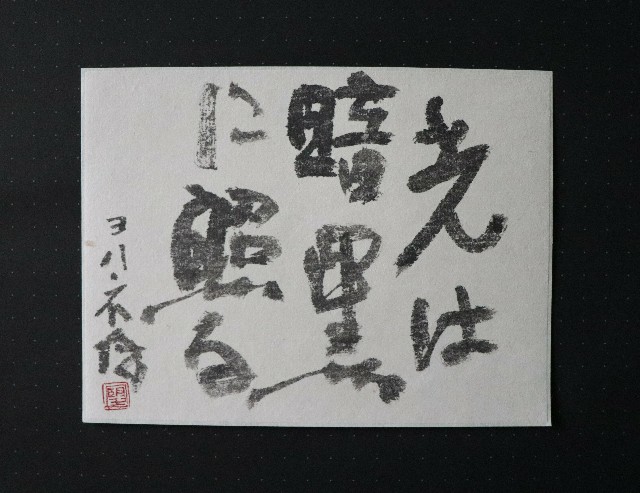 光は
暗黒
に照る
ヨハ・不除